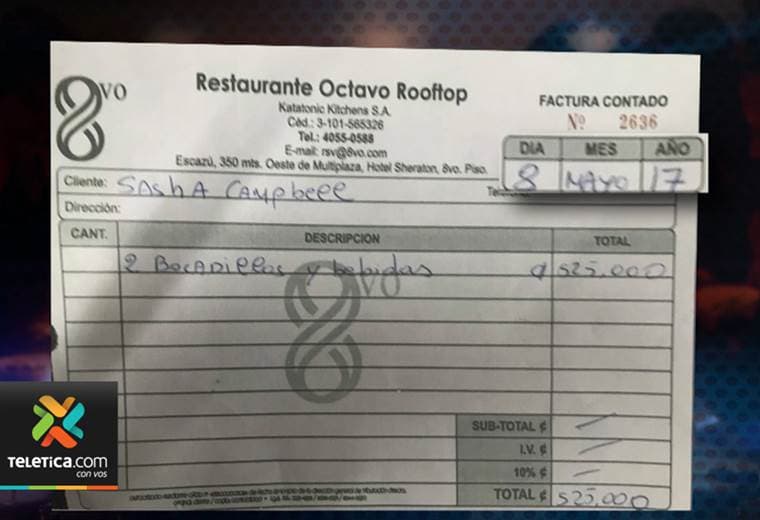 8VO
Restaurante Octavo Rooftop
Katatonic Kitchens S.A.
Céd.: 3-101-565326
Tel.: 4055-0588
E-mail: rsv@8vo.com
Escazú, 350 mts. Oeste de Multiplaza, Hotel Sheraton, 8vo. Piso.
FACTURA CONTADO
Nº 2636
DIA MES AÑO
8 MAYO 17
Cliente: SAShA CAMpbell
Dirección:
CANT. DESCRIPCION TOTAL
2 BocADillos y bebidas ¢ 525,000
8vo
SUB-TOTAL ¢
I.V. ¢
10% ¢
TOTAL ¢ 525,000
TELETICA.com
con vos